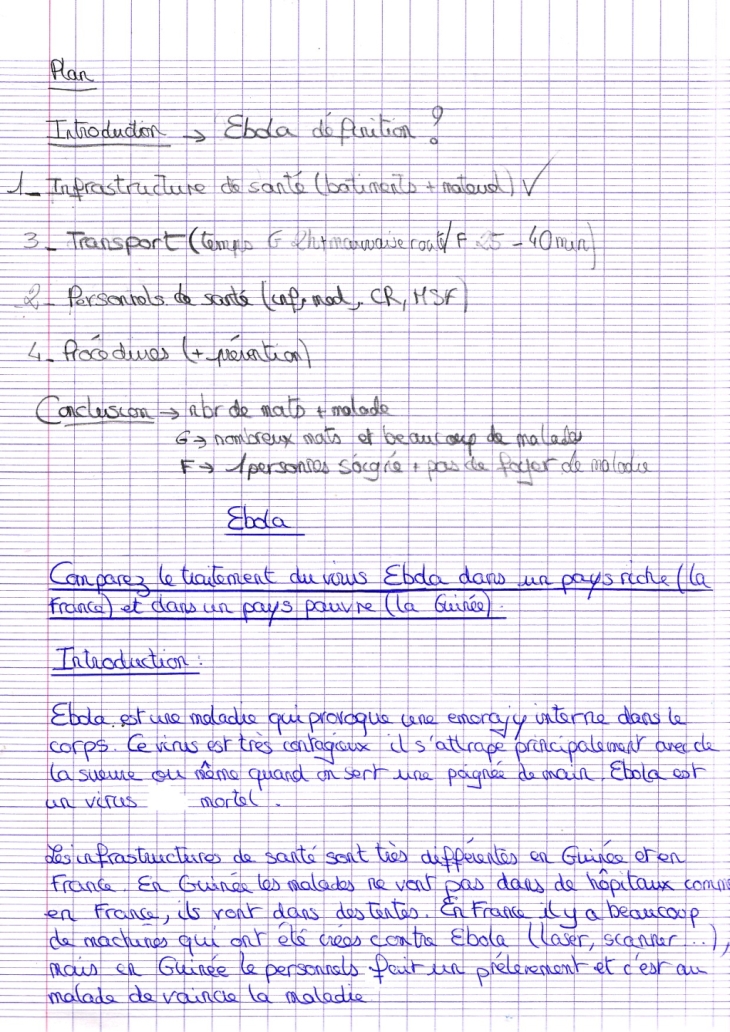 Plan
Introduction → Ebola définition ?
1_ Infrastructure de santé (batiments + materiel) ✓
3_ Transport (temps G 2h+mauvaise route/ F 25 - 40 min)
2_ Personnels de santé (inf, med, CR, MSF)
4_ Procédures (+ prévention)
Conclusion → nbr de mats + malade
G → nombreux mats et beaucoup de malades
F → 1 personnes soignée + pas de foyer de maladie
Ebola
Comparez le traitement du virus Ebola dans un pays riche (la
France) et dans un pays pauvre (la Guinée).
Introduction :
Ebola est une maladie qui provoque une emorajy interne dans le
corps. Ce virus est très contagieux il s'attrape principalement avec de
la sueure ou même quand on sert une poignée de main. Ebola est
un virus mortel.
Les infrastructures de santé sont très différentes en Guinée et en
France. En Guinée les malades ne vont pas dans de hôpitaux comme
en France, ils vont dans des tentes. En France il y a beaucoup
de machines qui ont été créés contre Ebola (laser, scanner ...),
mais en Guinée le personnels fait un prélèvement et c'est au
malade de vaincre la maladie